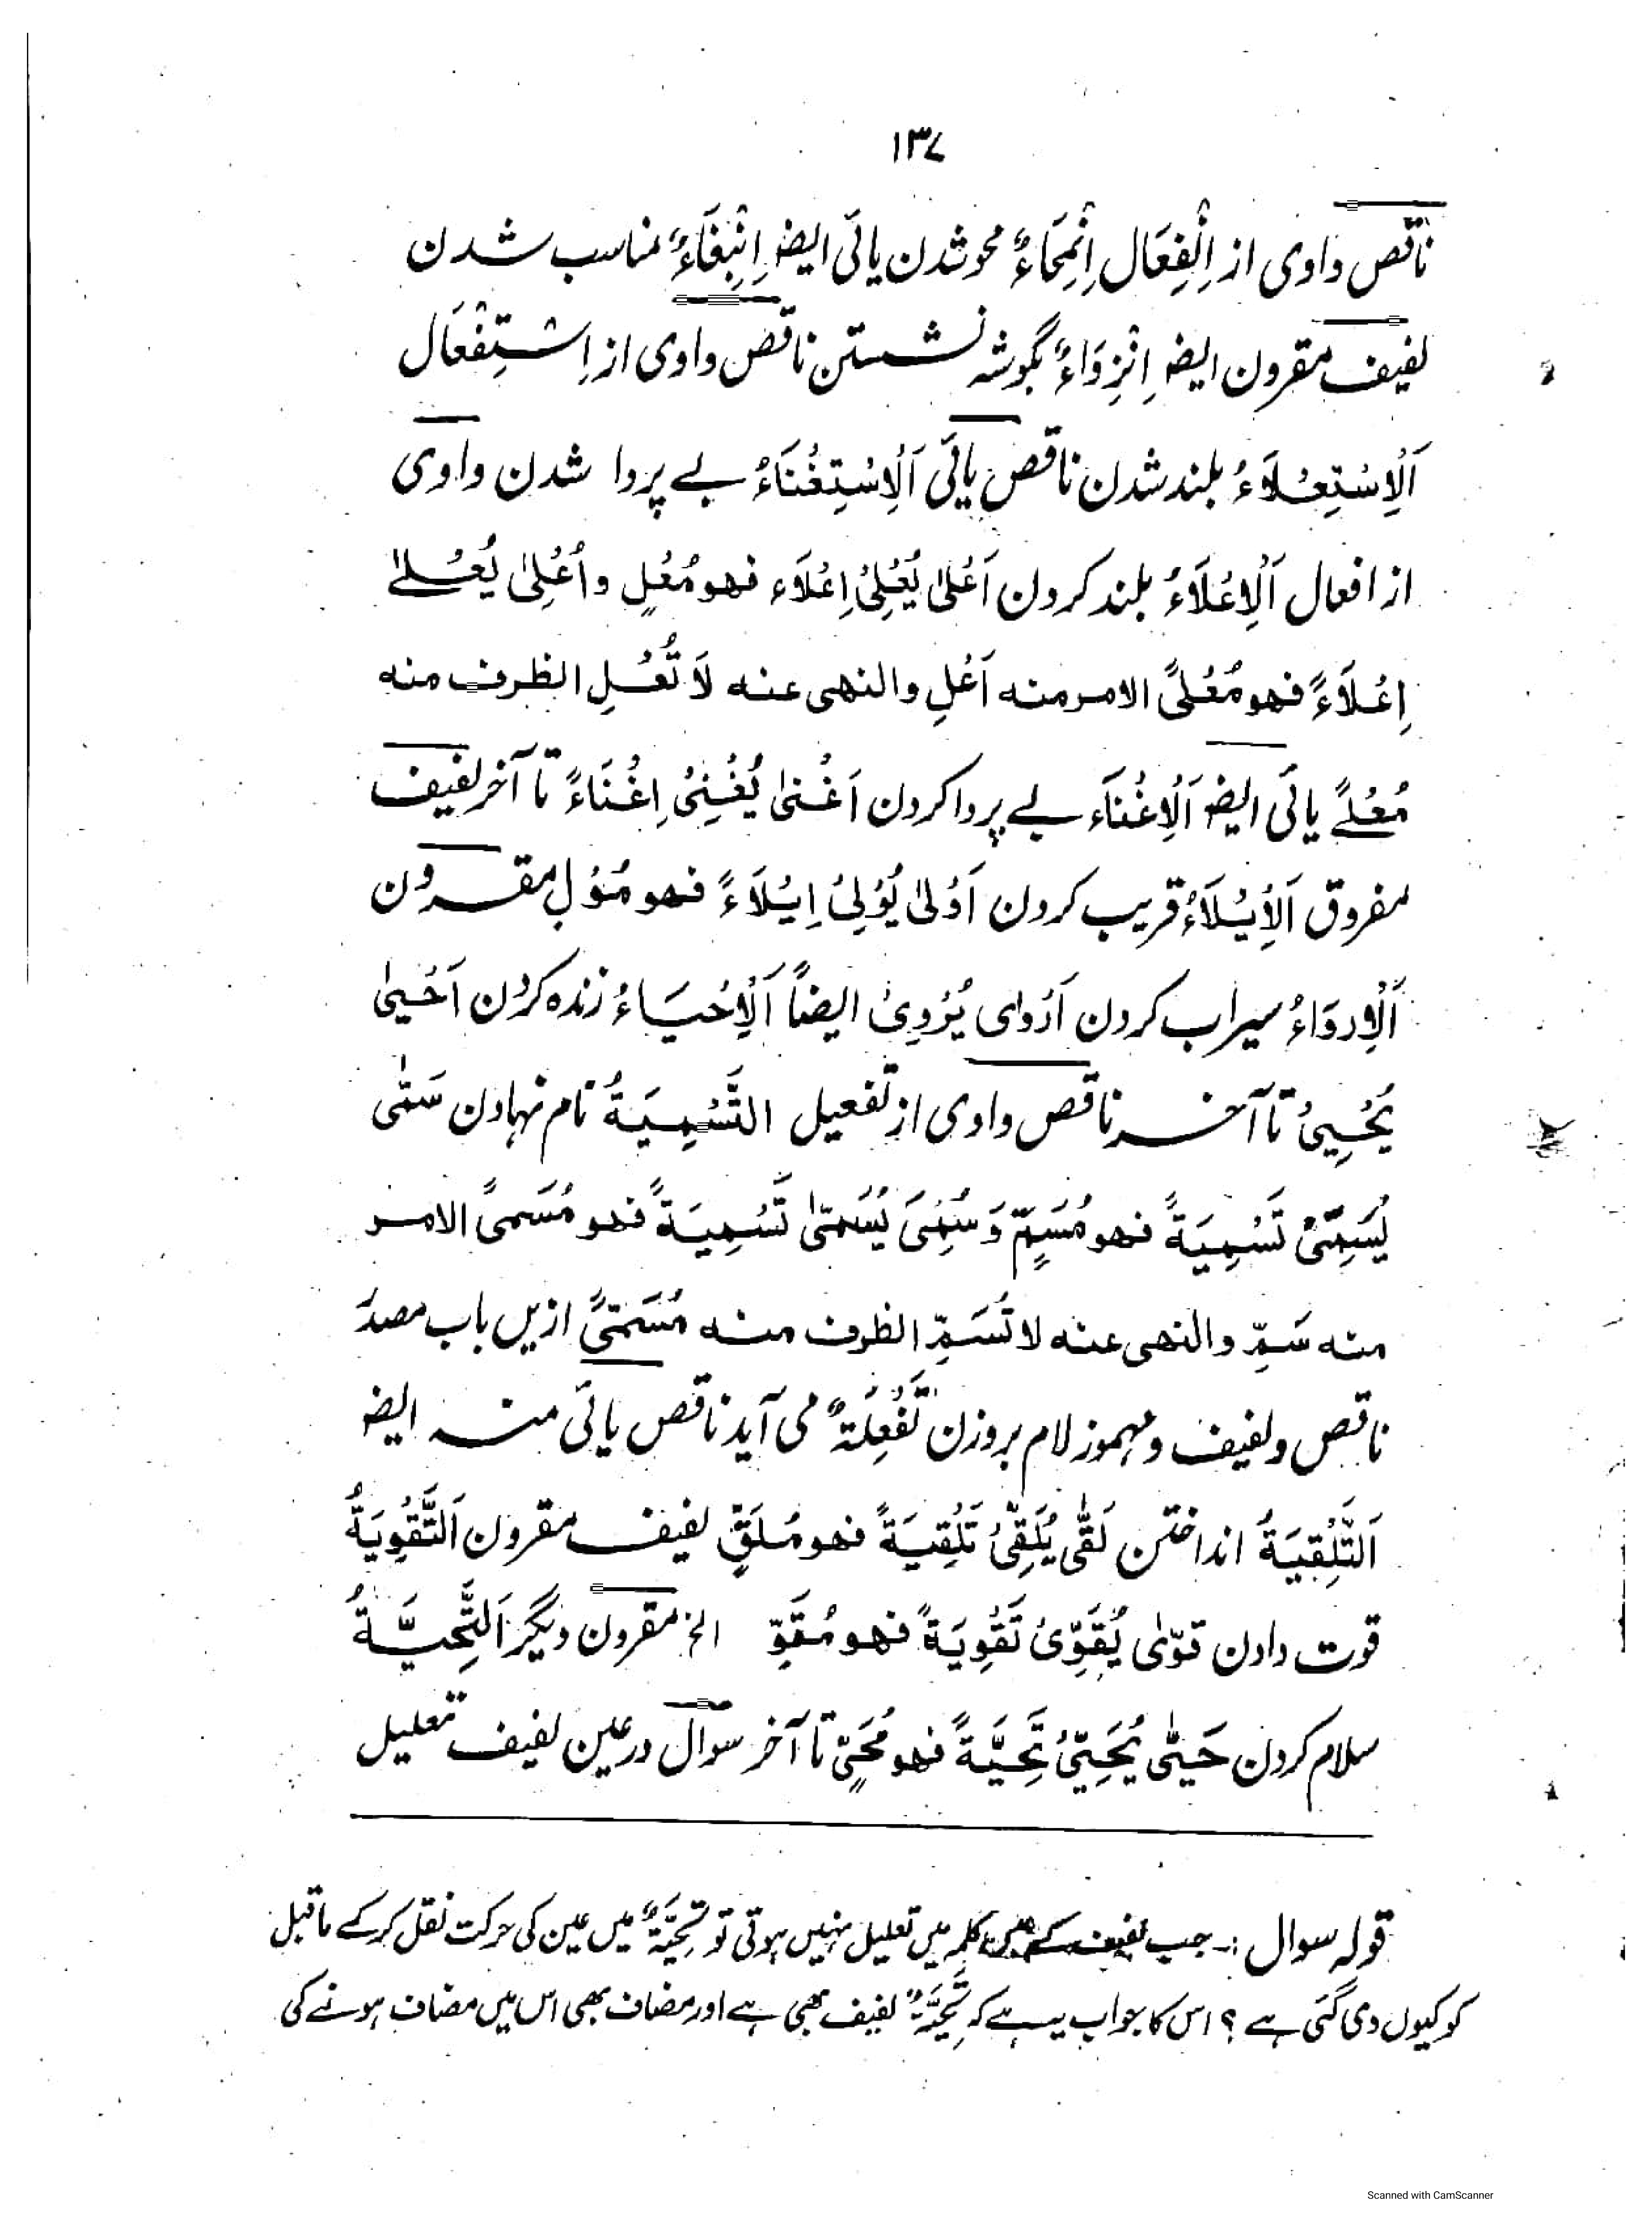 ۱۳۷
ناقص واوی از اِنْفِعَال اِنْمِحَاءٌ محو شدن یائی ایضؑ اِنْبِغَاءٌ مناسب شدن
لفیف مقرون ایضؑ اِنْزِوَاءٌ بگوشہ نشستن ناقص واوی از اِسْتِفْعَال
اَلْاِسْتِعْلَاءُ بلند شدن ناقص یائی اَلْاِسْتِغْنَاءُ بے پروا شدن واوی
از افعال اَلْاِعْلَاءُ بلند کردن اَعْلیٰ یُعْلِیْ اِعْلَاء فهو مُعْلٍ و اُعْلِیَ یُعْلےٰ
اِعْلَاءً فهو مُعْلیً الامر منه اَعْلِ والنهی عنه لَا تُعْلِ الظرف منه
مُعْلےً یائی ایضؑ اَلْاِغْنَاَء بے پروا کردن اَغْنیٰ یُغْنِیْ اِغْنَاءً تا آخر لفیف
مفروق اَلْاِیْلَاءُ قریب کردن اَوْلیٰ یُوْلِیْ اِیْلَاءً فهو مُوْلٍ مقرون
اَلْاِرْوَاءُ سیراب کردن اَرْوای یُرْوِیْ ایضاً اَلْاِحْیَاءُ زندہ کردن اَحْییٰ
یُحْیِیْ تا آخر ناقص واوی از تفعیل التَّسْمِیَةُ نام نہادن سَمّٰی
یُسَمِّیْ تَسْمِیَةً فهو مُسَمٍّ وَ سُمِّیَ یُسَمّیٰ تَسْمِیَةً فهو مُسَمیً الامر
منه سَمِّ والنهی عنه لا تُسَمِّ الظرف منه مُسَمّیً ازیں باب مصدر
ناقص و لفیف و مہموز لام بروزن تَفْعِلَةٌ می آید ناقص یائی منه ایضؑ
اَلتَّلْقِیَةُ انداختن لَقّٰی یُلَقِّیْ تَلْقِیَةً فهو مُلَقٍّ لفیف مقرون اَلتَّقْوِیَةُ
قوت دادن قوّیٰ یُقَوِّیْ تَقْوِیَةً فهو مُقَوٍّ الخ مقرون دیگر اَلتَّحِیَّةُ
سلام کردن حَیّٰی یُحَیِّیْ تَحِیَّةً فهو مُحَیٍّ تا آخر سوال در عین لفیف تعلیل
قولہ سوال :۔ جب لفیف کے عین کلمہ میں تعلیل نہیں ہوتی تو تَحِیَّةٌ میں عین کی حرکت نقل کرکے ماقبل
کو کیوں دی گئی ہے ؟ اس کا جواب یہ ہے کہ تَحِیَّةٌ لفیف بھی ہے اور مضاف بھی اس میں مضاف ہونے کی
Scanned with CamScanner